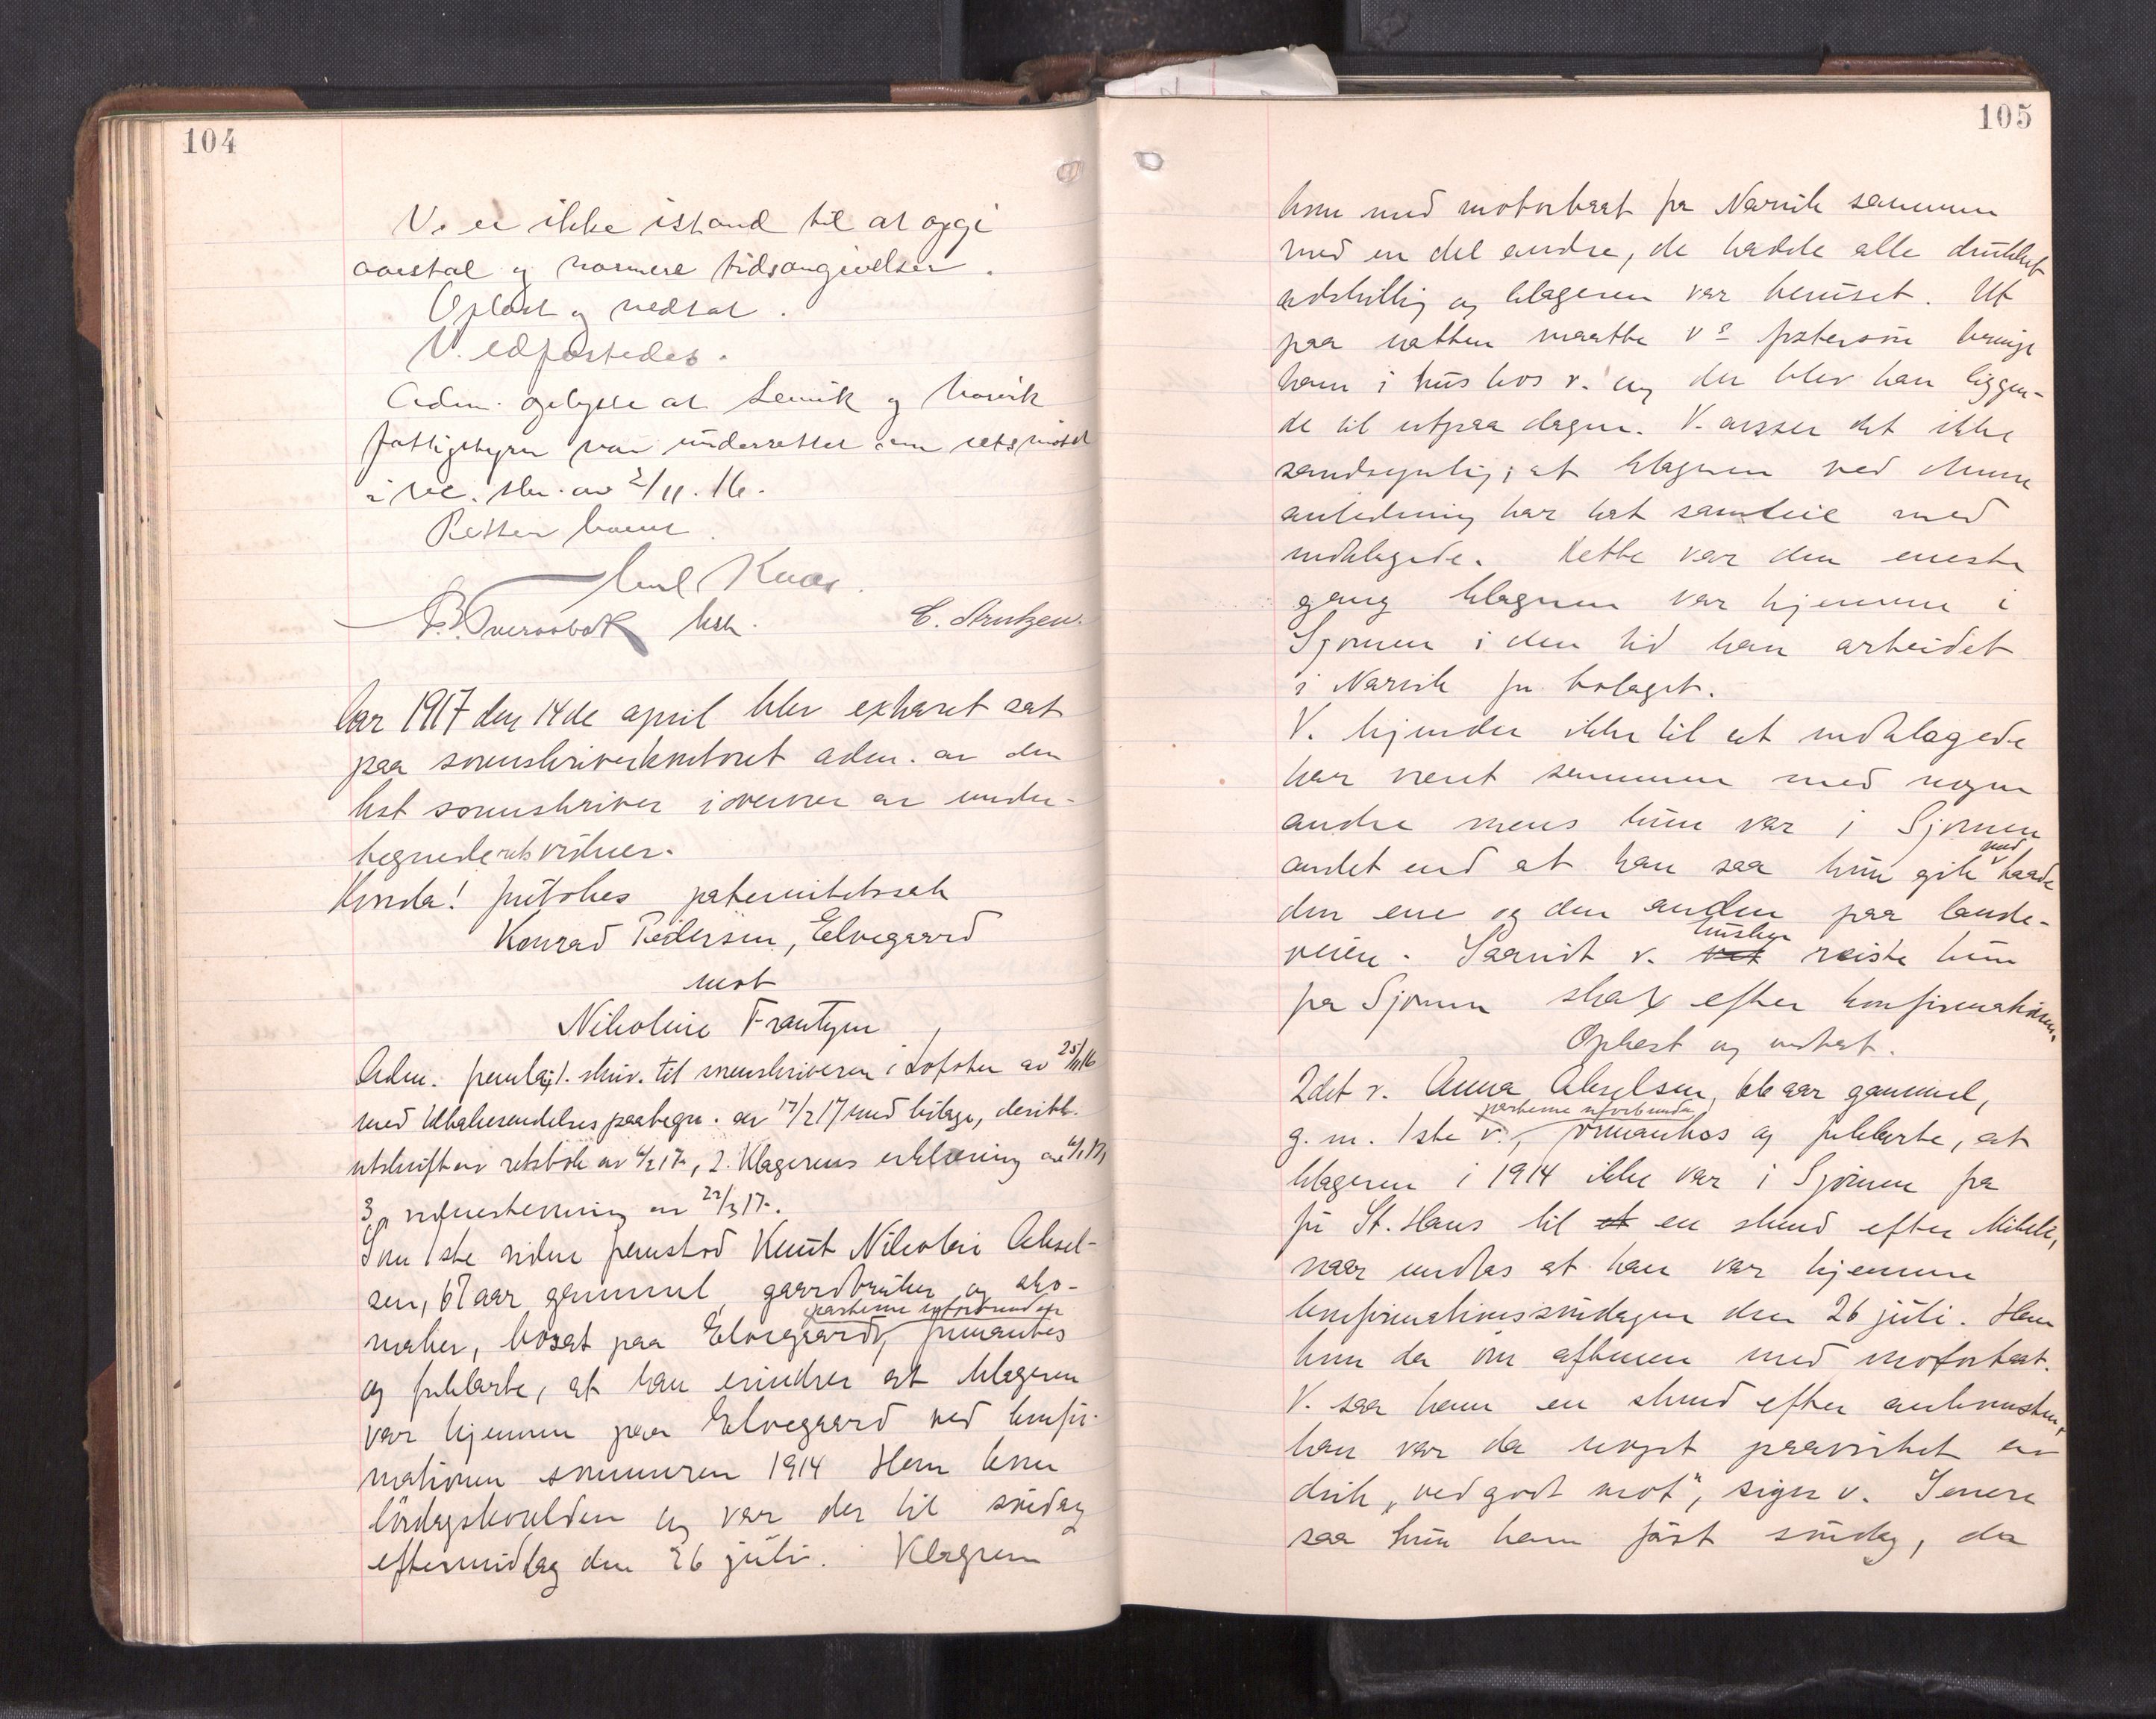 104
V. er ikke istand til at opgi
aarstal og nærmere tidsangivelser.
Oplæst og vedtat.
V. edfæstedes.
Adm. oplyste at Lenvik og Narvik
fattigstyrer var underrettet om retsmøtet
i rec. skr. av 2/11. 16.
Retten hævet.
Emil Knar.
C. Arntzen.
Aar 1917 den 14de april blev extraret sat
paa sorenskriverkontoret adm. av den
kst sorenskriver i overvær av under-
tegnede retsvidner.
Hvorda! foretokes paternitetssak
Konrad Pedersen, Elvegaard
mot
Nikoline Frantzen
Adm. fremla, 1. skriv. til sorenskriveren i Lofoten av 25/11 16
med tilbakesendelsespaategn. av 17/2 17 med bilage, deribl.
utskrift av retsbok av 6/2 17, 2. Klagerens erklæring av
3, vidnestevning av 22/3 17.
Som 1ste vidne fremstod Knut Nikolai Aksel-
sen, 67 aar gammel, gaardbruker og sko-
partene uforbunden
maker, bosat paa Elvegaard, formantes
og forklarte, at han erindrer at klageren
var hjemme paa Elvegaard ved konfir-
mationen sommeren 1914 Han kom
lördagskvelden og var der til söndag
eftermiddag den 26 juli. Klageren
105
kom med motorbaat fra Narvik sammen
med en del andre, de hadde alle drukket
adskillig og klageren var beruset. Ut
paa natten maatte v's fostersön bringe
ham i hus hos v. og der blev han liggen-
de til utpaa dagen. V. anser det ikke
sandsynlig, at klageren ved denne
anledning har hat samleie med
indklagede. Dette var den eneste
gang klageren var hjemme i
Skjomen i den tid han arbeidet
i Narvik for bolaget.
V. kjender ikke til at indklagede
har været sammen med nogen
andre mens hun var i Skjomen
med
andet end at han saa hun gik baade
den ene og den anden paa lande-
husker
veien. Saavidt v. vet reiste hun
fra Skjomen strax efter konfirmationen.
Oplæst og vedtat.
2det v. Anna Akselsen, 66 aar gammel,
partene uforbunden
g. m. 1ste v., formantes og forklarte, at
klageren i 1914 ikke var i Skjomen fra
för St. Hans til et en stund efter Mikkeli,
naar undtas at han var hjemme
konfirmationssöndagen den 26 juli. Han
kom da om aftenen med motorbaat.
V. saa ham en stund efter ankomsten,
han var da noget paavirket av
drik „ved godt mot", siger v. Senere
saa hun ham först söndag, da